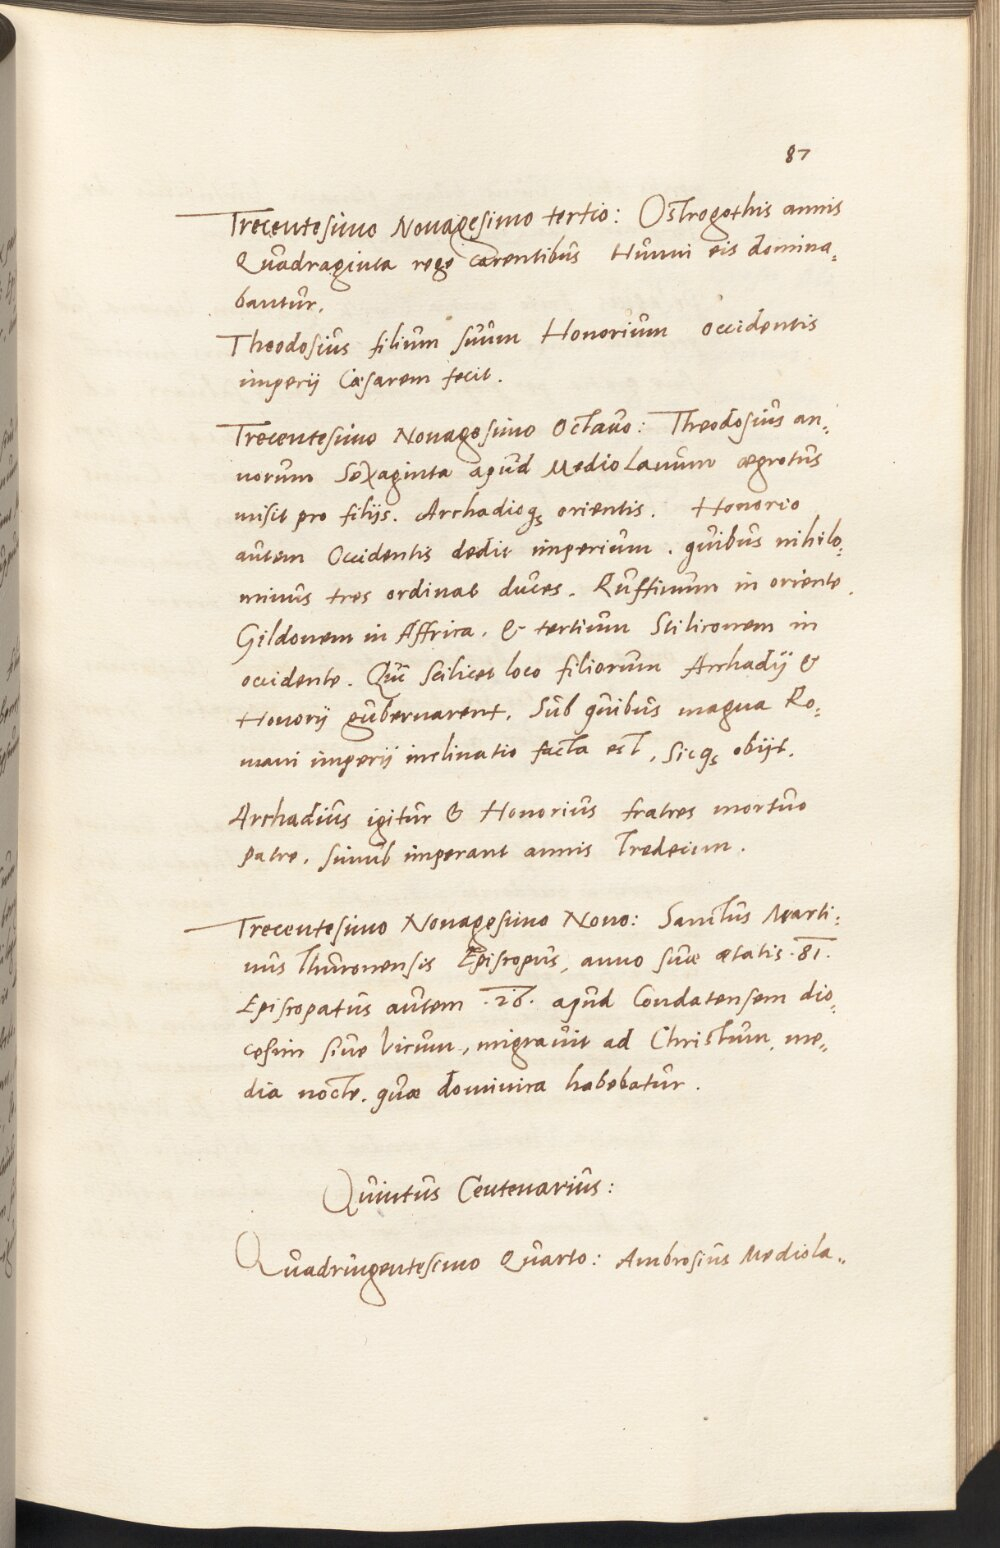 87
Trecentesimo Nonagesimo tertio: Ostrogothis annis
Quadraginta rege carentibus Hunni eis domina,
bantur.
Theodosius filium suum Honorium occidentis
imperij Cæsarem fecit.
Trecentesimo Nonagesimo Octauo: Theodosius an,,
norum Sexaginta apud Mediolanum ægrotus
misit pro filijs. Archadioq₃ orientis. Honorio
autem Occidentis dedit imperium. quibus nihilo,
minus tres ordinat duces. Ruffinum in oriente.
Gildonem in Affrica. & tertium Stiliconem in
occidente. Qui scilicet loco filiorum Archadij &
Honorij gubernarent. Sub quibus magna Ro,
mani imperij inclinatio facta est, sicq₃ obijt.
Archadius igitur & Honorius fratres mortuo
patre. simul imperant annis Tredecim.
Trecentesimo Nonagesimo Nono: Sanctus Marti,
nus Thuronensis Episcopus, anno suæ ætatis .81.
Episcopatus autem .26. apud Condatensem dio,
cesim siue Vicum, migrauit ad Christum, me,,
dia nocte. quæ dominica habebatur.
Quintus Centenarius:
Quadringentesimo Quarto: Ambrosius Mediola,,